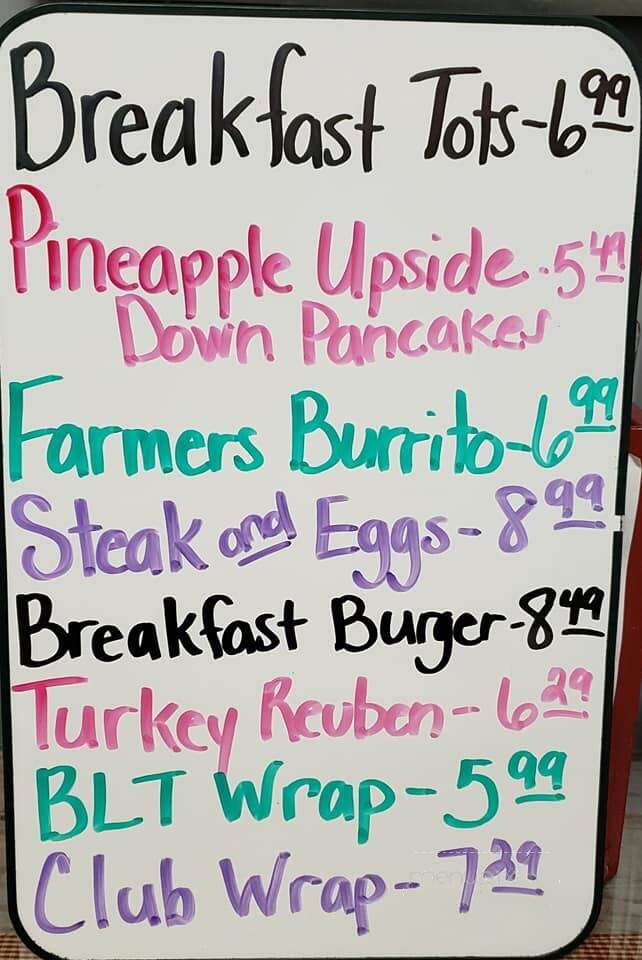 Breakfast Tots-6 99
Pineapple Upside-5 49
Down Pancakes
Farmers Burrito-6 99
Steak and Eggs-8 99
Breakfast Burger-8 49
Turkey Reuben-6 29
BLT Wrap-5 99
Club Wrap-7 29